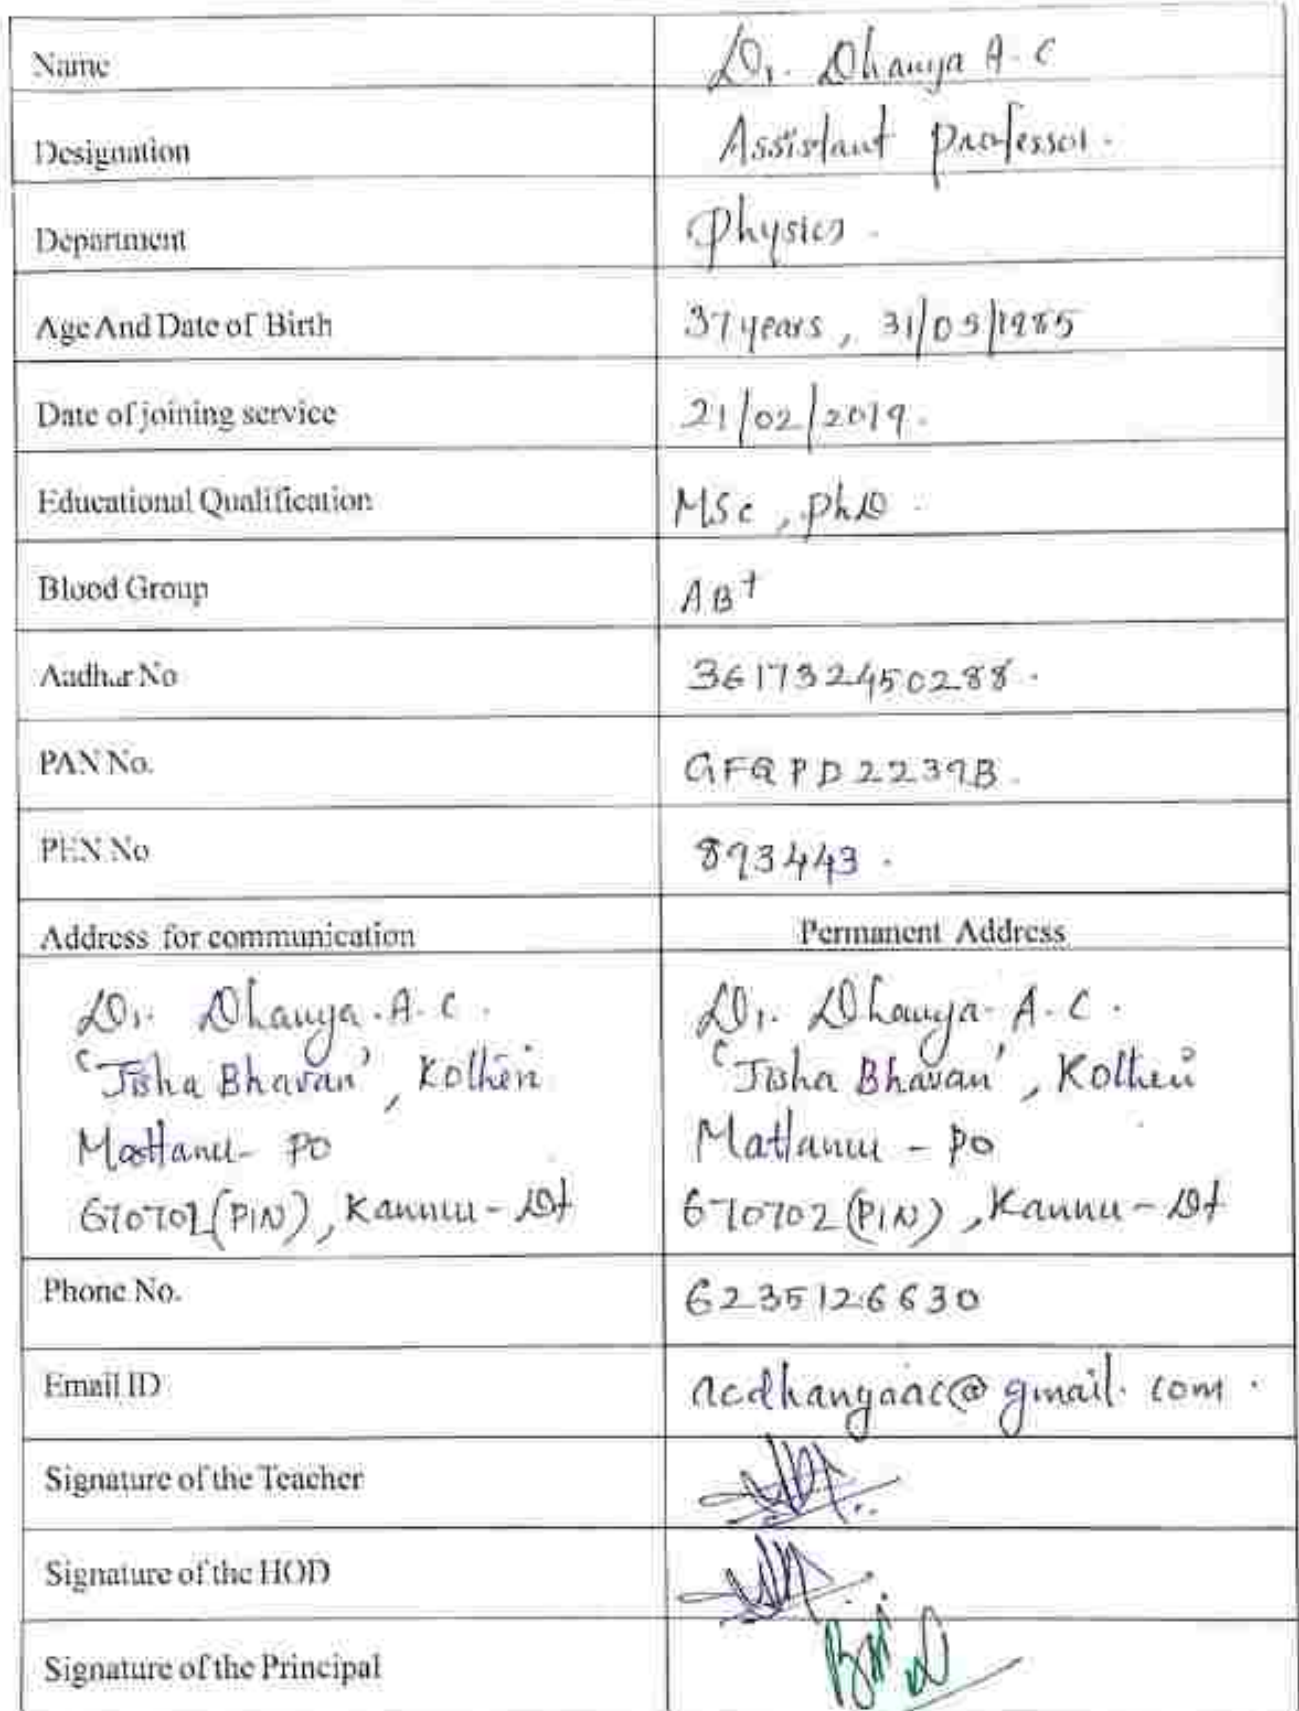 Name Dr. Dhanya A. C
Designation Assistant Professor.
Department Physics.
Age And Date of Birth 37 years, 31/05/1985
Date of joining service 21/02/2019.
Educational Qualification MSc, PhD.
Blood Group AB+
Aadhar No 361732450288.
PAN No. GFQPD2239B.
PEN No 893443.
Address for communication Permanent Address
Dr. Dhanya. A. C. Dr. Dhanya. A. C.
'Jisha Bhavan', Kolheri 'Jisha Bhavan', Kolheri
Mattanur - PO Mattanur - PO
670702 (PIN), Kannur - Dt 670702 (PIN), Kannur - Dt
Phone No. 6235126630
Email ID acdhanyaac@gmail.com.
Signature of the Teacher
Signature of the HOD
Signature of the Principal